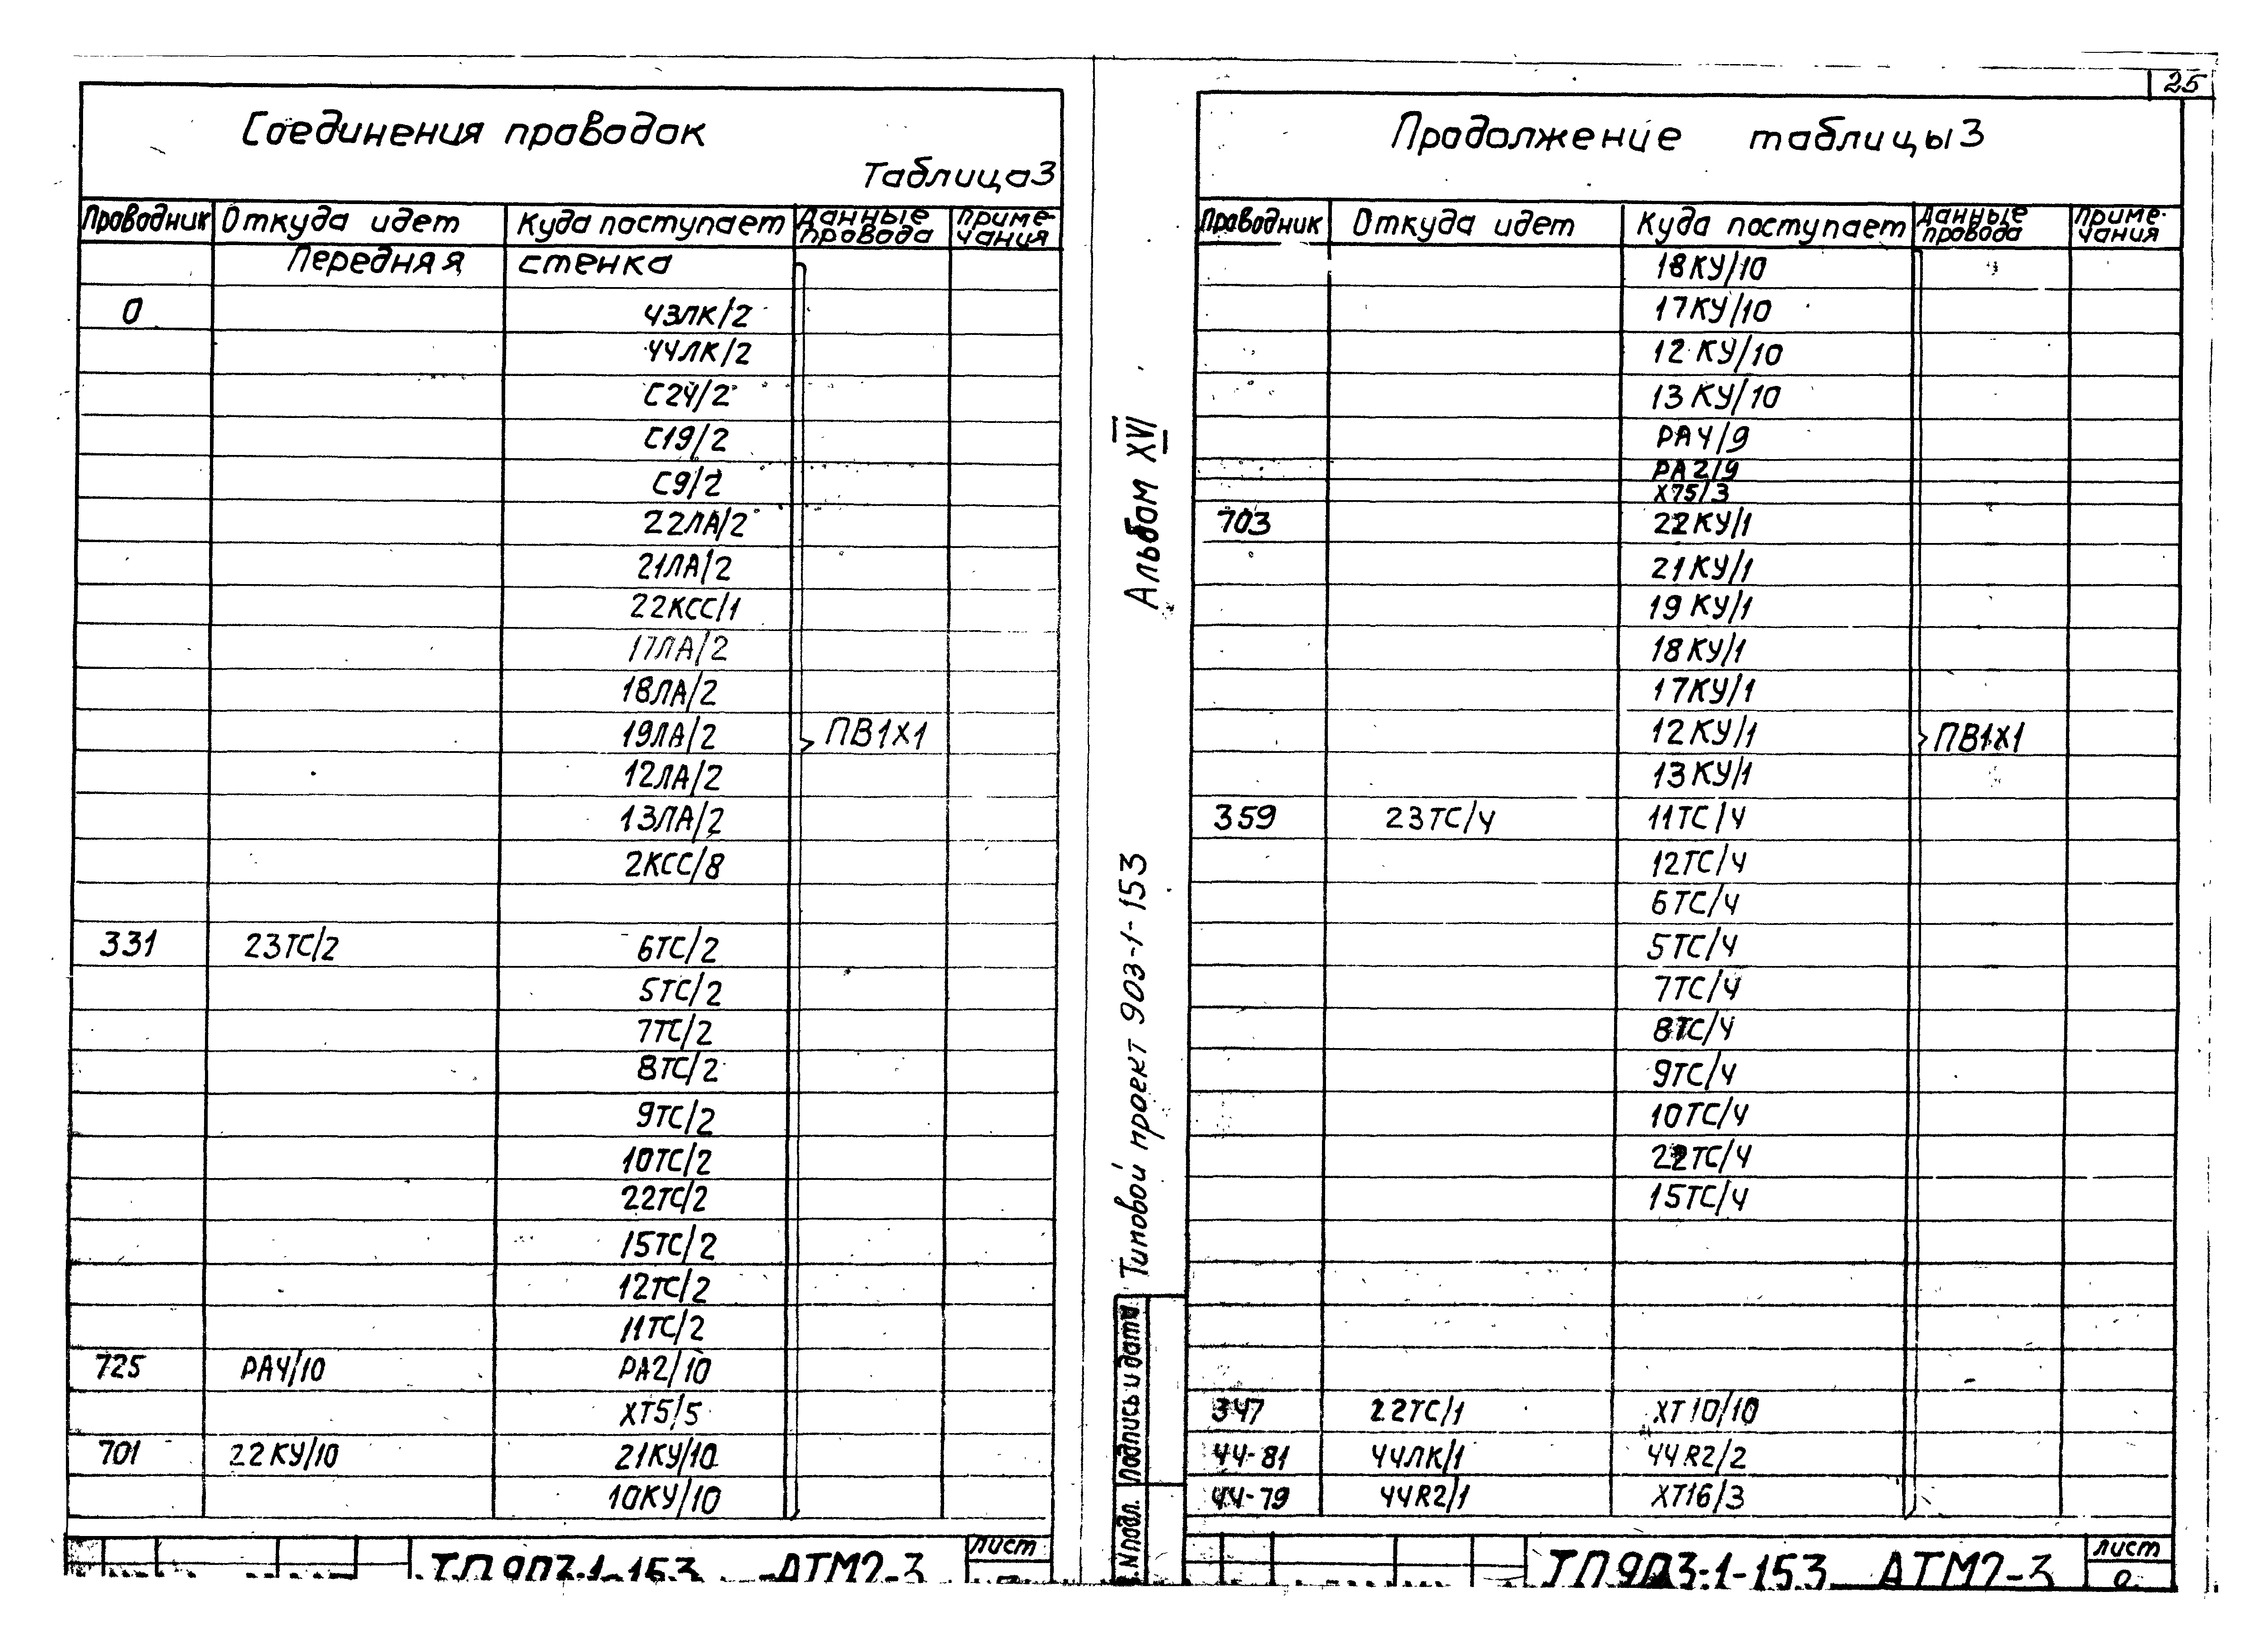 25
Соединения проводок
Таблица 3
Проводник Откуда идет Куда поступает Данные провода Приме-чания
Передняя стенка
0 43ЛК/2
44ЛК/2
С24/2
С19/2
С9/2
22ЛА/2
21ЛА/2
22КСС/1
17ЛА/2
18ЛА/2
19ЛА/2 ПВ1Х1
12ЛА/2
13ЛА/2
2КСС/8
331 23ТС/2 6ТС/2
5ТС/2
7ТС/2
8ТС/2
9ТС/2
10ТС/2
22ТС/2
15ТС/2
12ТС/2
11ТС/2
725 РА4/10 РА2/10
ХТ5/5
701 22КУ/10 21КУ/10
10КУ/10
ТП 903-1-153 АТМ2-3 лист
Альбом XVI
Типовой проект 903-1-153
Подпись и дата
N подл.
Продолжение таблицы 3
Проводник Откуда идет Куда поступает Данные провода Приме-чания
18КУ/10
17КУ/10
12КУ/10
13КУ/10
РА4/9
РА2/9
Х75/3
703 22КУ/1
21КУ/1
19КУ/1
18КУ/1
17КУ/1
12КУ/1 ПВ1Х1
13КУ/1
359 23ТС/4 11ТС/4
12ТС/4
6ТС/4
5ТС/4
7ТС/4
8ТС/4
9ТС/4
10ТС/4
22ТС/4
15ТС/4
347 22ТС/1 ХТ10/10
44-81 44ЛК/1 44R2/2
44-79 44R2/1 ХТ16/3
ТП 903-1-153 АТМ2-3 лист